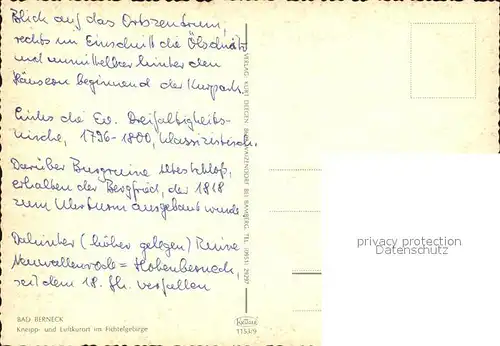 Blick auf das Ortszentrum,
rechts im Einschnitt die Ölschnitz
und unmittelbar hinter den
Häusern beginnend der Kurpark.
Links die Ev. Dreifaltigkeits-
kirche, 1796-1800, klassizistisch.
Darüber Burgruine Altes Schloß,
erhalten der Bergfried, der 1818
zum Uhrturm ausgebaut wurde
Dahinter (höher gelegen) Ruine
Neuwallenrode = Hohenberneck,
seit dem 18. Jh. verfallen
BAD BERNECK
Kneipp- und Luftkurort im Fichtelgebirge
1153/9
VERLAG KURT BEI BAMBERG, TEL. (0951) 29297
privacy protection
Datenschutz